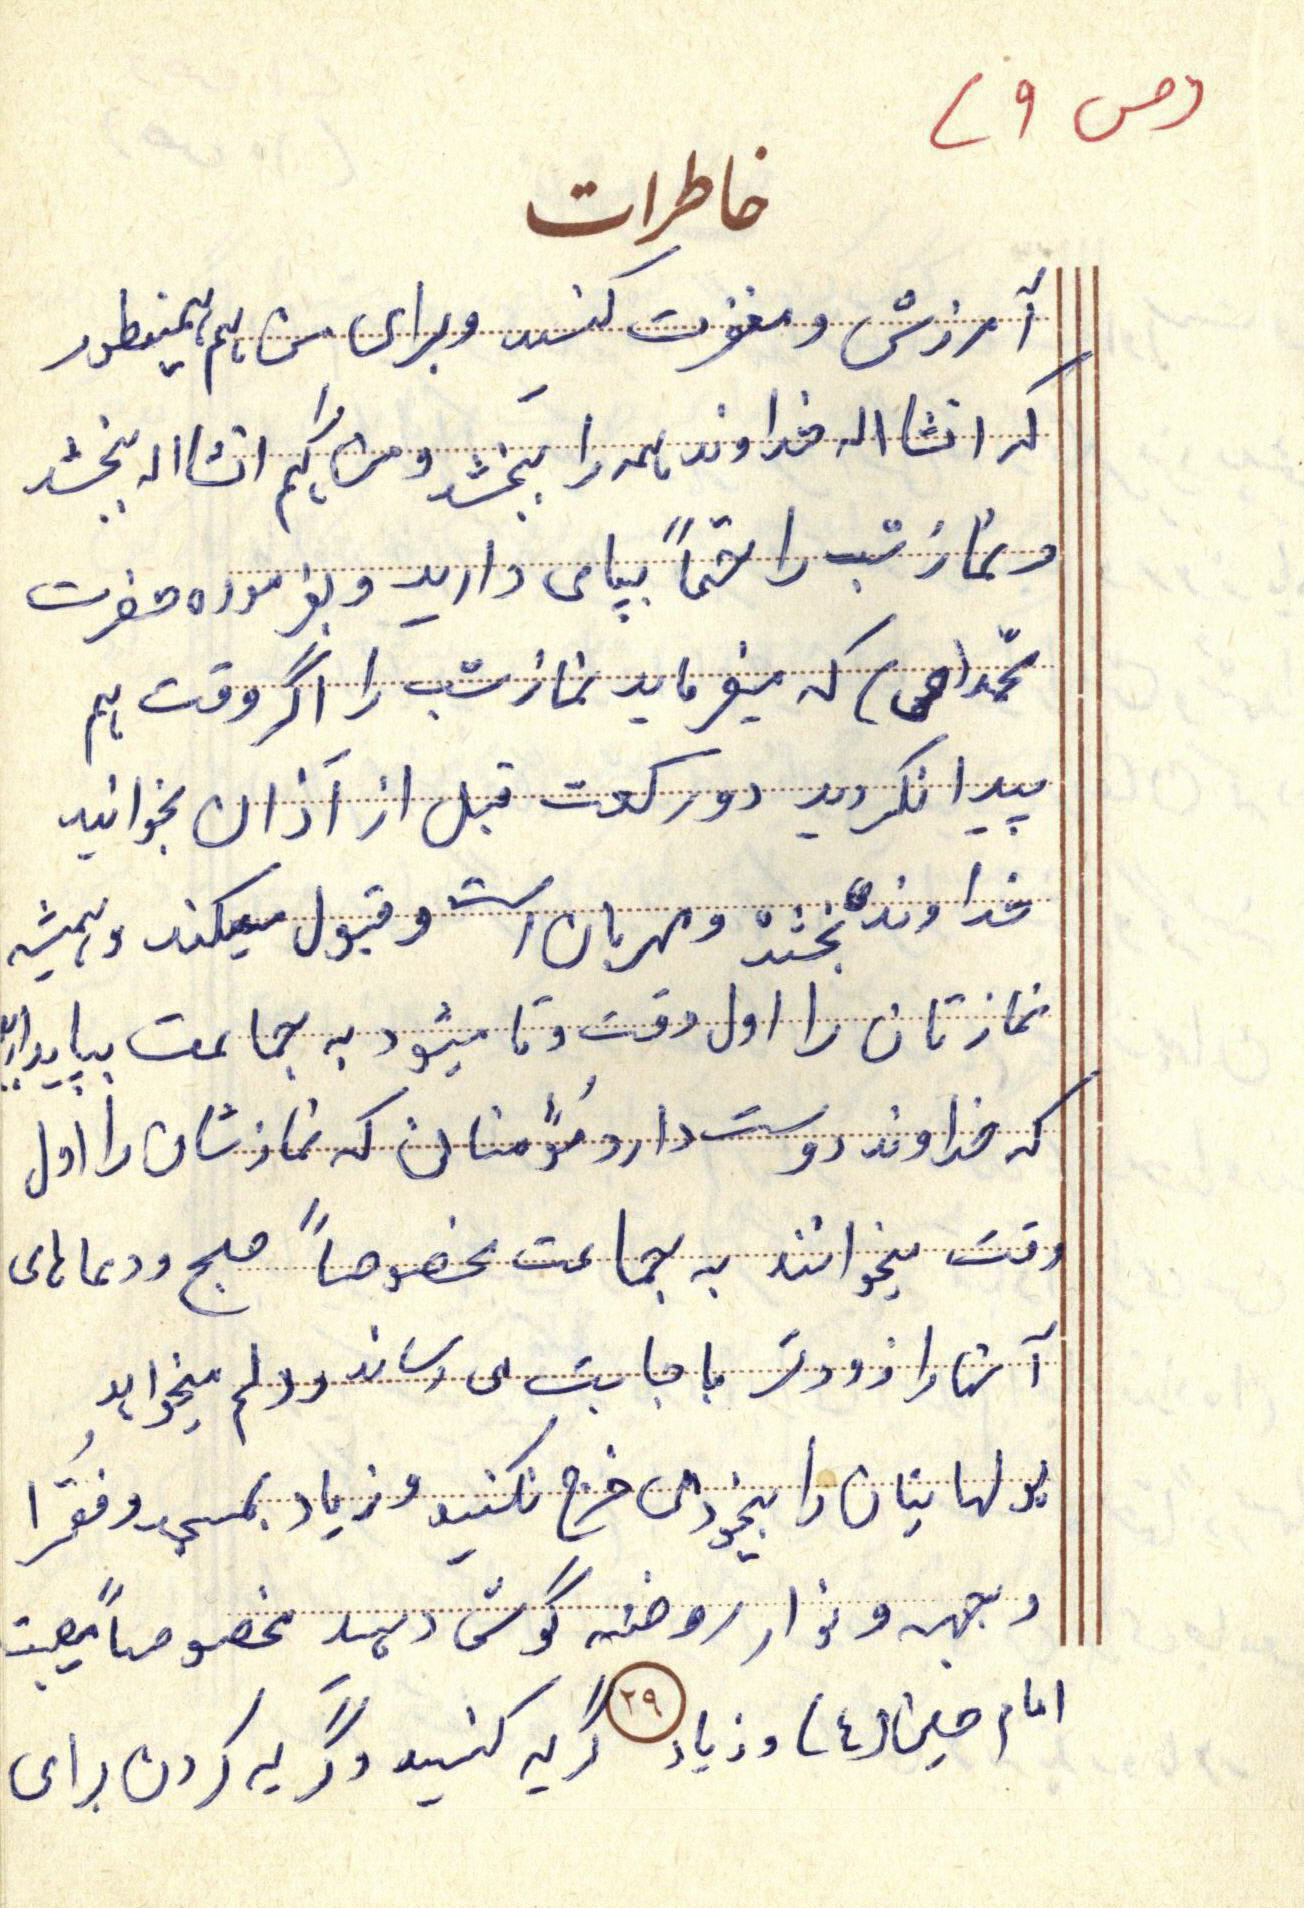 (ص ۹)
خاطرات
آمرزش و مغفرت کنید و برای من هم همینطور
که انشااله خداوند همه را ببخشد و من را هم انشااله ببخشد
و نماز شب را حتماً بپامی دارید و بفرموده حضرت
محمد (ص) که میفرماید نماز شب را اگر وقت هم
پیدا نکردید دو رکعت قبل از آذان بخوانید
خداوند بخشنده و مهربان است و قبول میکند و همیشه
نمازتان را اول وقت و تا میشود به جماعت بپا دارید
که خداوند دوست دارد مُؤمنان که نمازشان را اول
وقت میخوانند به جماعت مخصوصاً صبح و دعاهای
آنها را زودتر باجابت می رساند و دلم میخواهد
پولهایتان را بیخودی خرج نکنید و زیاد بمسجد و فُقَرا
و جبهه و نوار روضه گوش دهید مخصوصاً مصیبت
امام حسین (ع) و زیاد گریه کنید و گریه کردن برای
۲۹